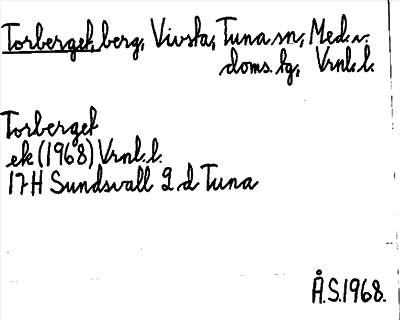 Torberget, berg, Vivsta, Tuna sn, Med. v.
doms. tg, Vrnl. l.
Torberget
ek (1968) Vrnl. l.
17H Sundsvall 2 d Tuna
Å.S. 1968.